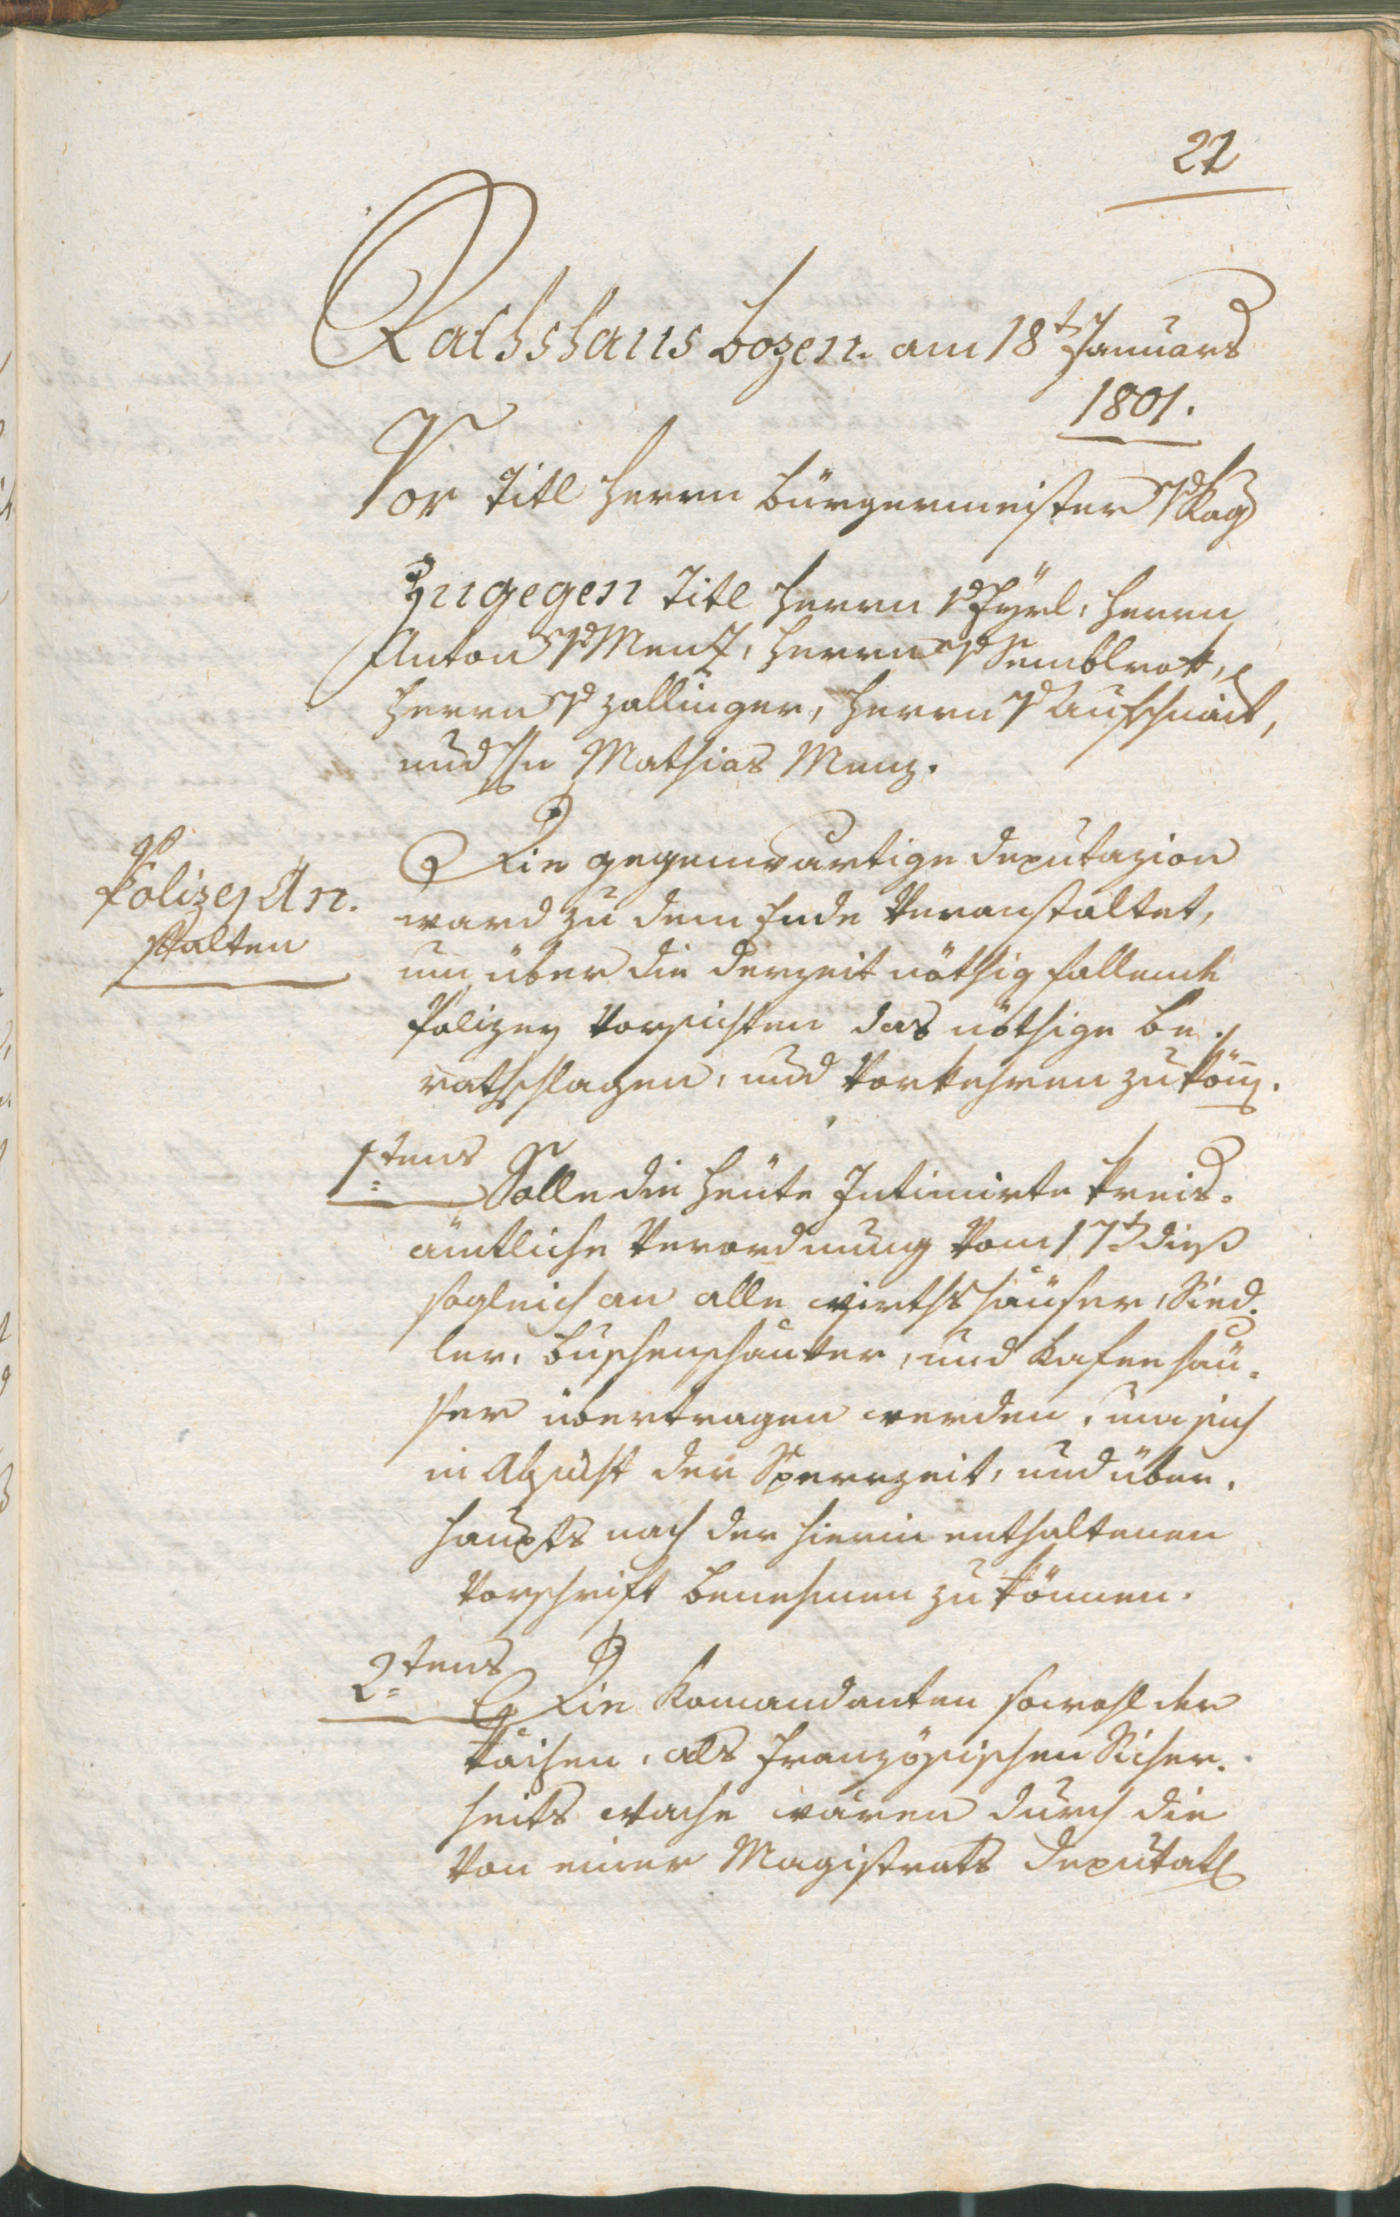 21
Rathshaus Bozen am 18t Januars
1801.
Vor Titl Herrn Bürgermeister v Kag
Zugegen Titl Herrn v Hÿrl, Herrn
Anton v Menz, Herrn v Semblrok,
Herrn v Zallinger, Herrn v Aufschnait,
und Hn Mathias Menz.
Polizej An-
stalten
Die gegenwärtige Deputazion
ward zu dem Ende Veranstaltet,
um über die derzeit nöthig fallende
Polizey Vorsichten das nöthige be-
rathschlagen, und Vorkehren zu kön̄.
1tens Solle die heüte Intimirte Kreis-
ämtliche Verordnung Vom 17t dieß
sogleich an alle Wirthshäuser, Sied-
ler, Buschenschänker, und Kafeehäu-
ser übertragen werden, um sich
in Absicht der Sperrzeit, und über-
haupts nach der hierin enthaltenen
Vorschrift benehmen zu können.
2tens Die Komandanten sowohl der
Käisen, als französischen Sicher-
heits Wache wären durch die
Von einer Magistrats Deputat